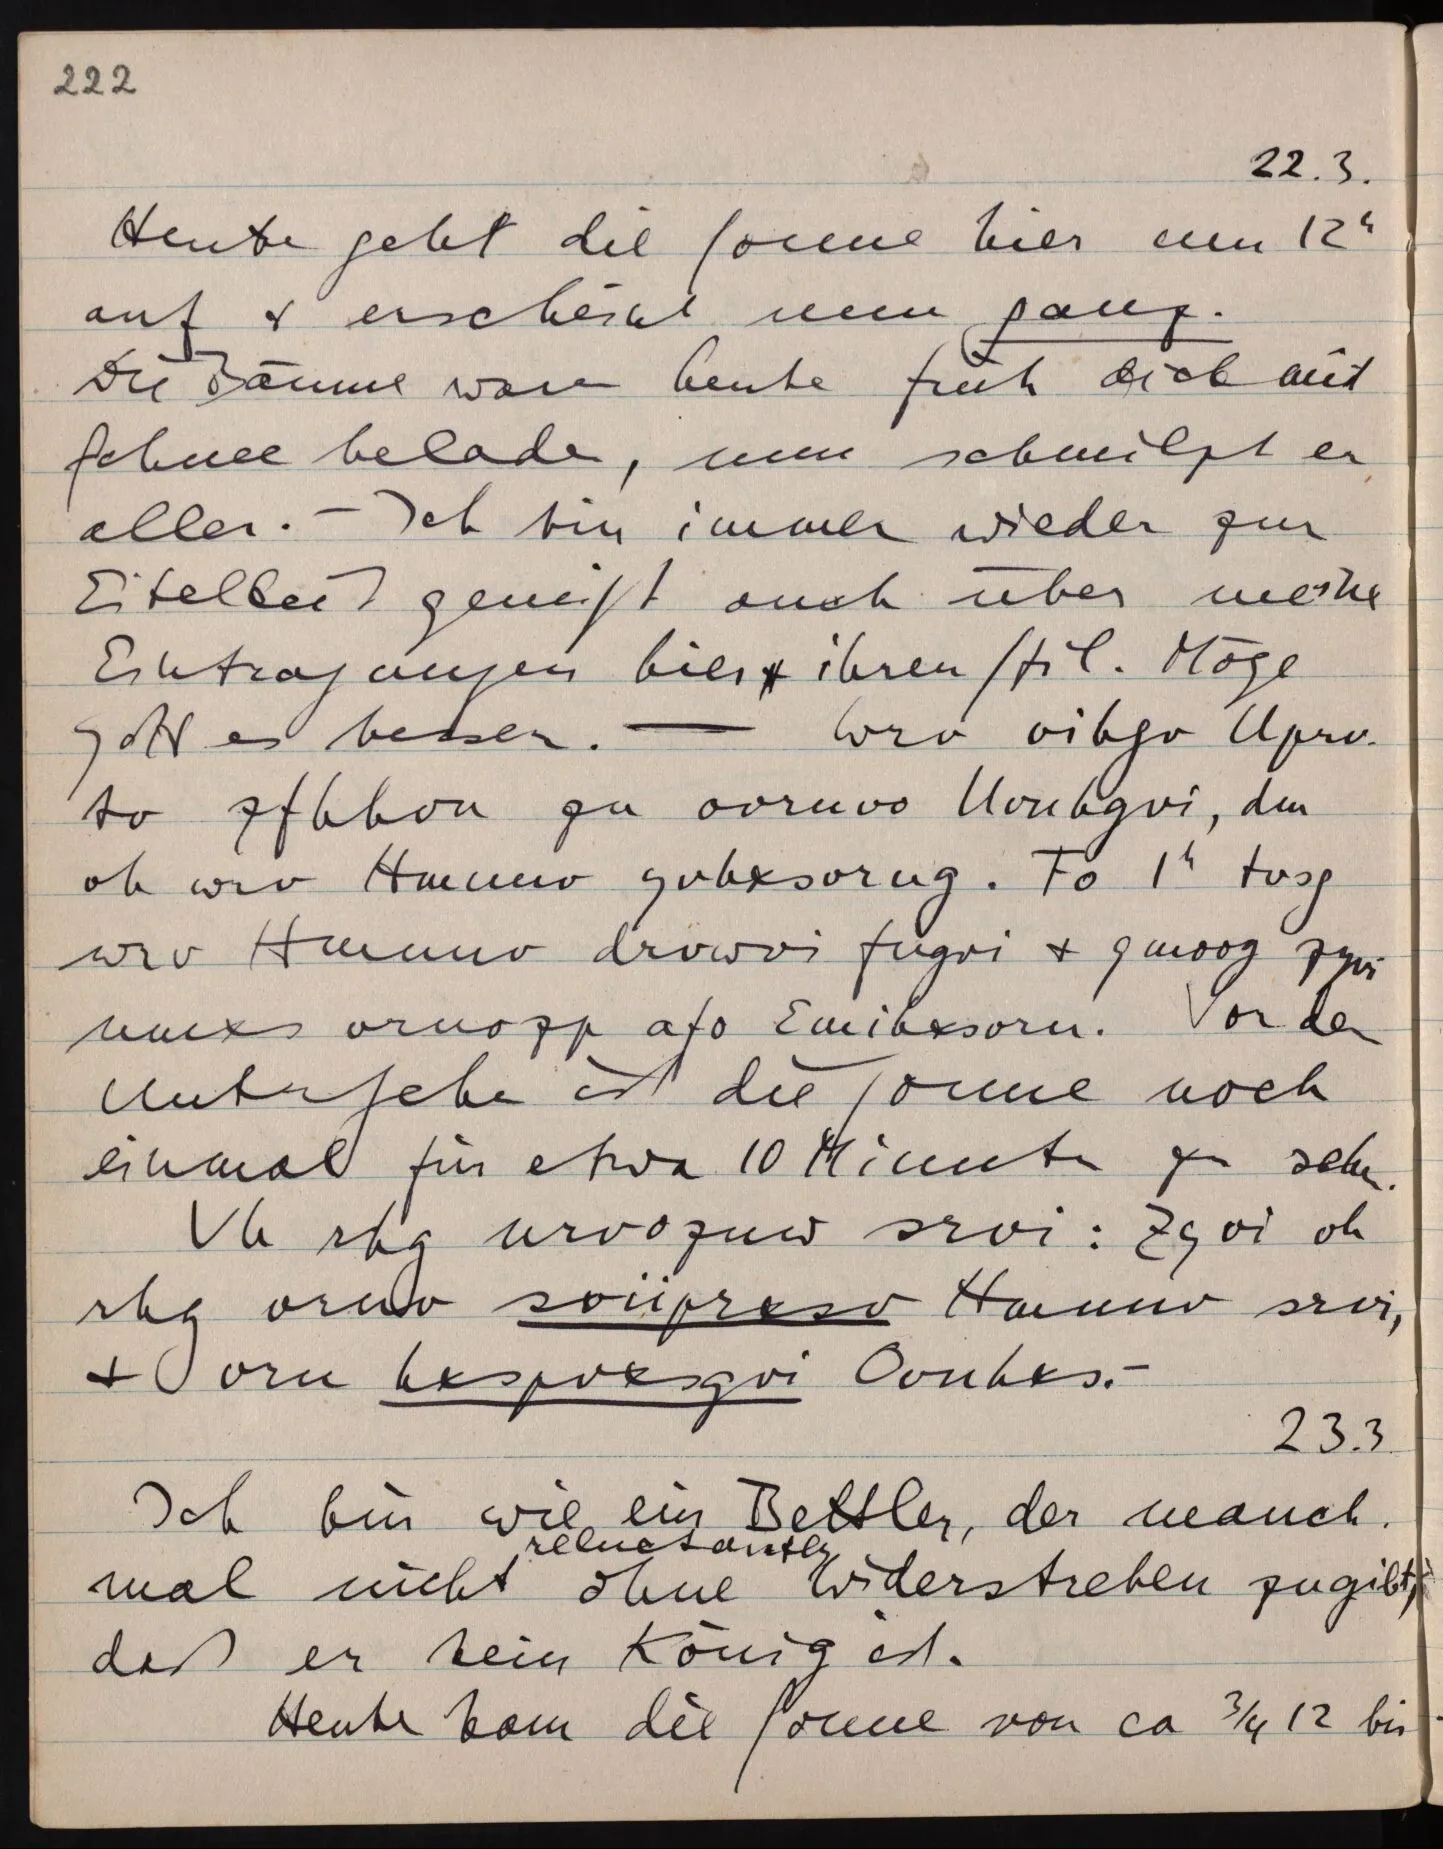 222
22.3.
Heute geht die Sonne hier um 12ʰ
auf & erscheint nun ganz.
Die Bäume waren heute früh dick mit
Schnee beladen, nun schmilzt er
aller. – Ich bin immer wieder zur
Eitelkeit geneigt auch über meine
Eintragungen hier & ihren Stil. Möge
Gott es bessern. — Wrv vihgv Uprv-
tv zfhhvn zn ovrnvo Uvnhgvi, dm
vh wrv Hmnnv yvhxsvrng. Fo 1ʰ tvsg
wrv Hmnnv drvwvi fngvi & qmoog zyvi
nmxs vrnozp afo Emihxsvrn. Vor dem
Untergehen ist die Sonne noch
einmal für etwa 10 Minuten zu sehen.
Vh rhg nrvoznw srvi: Zyvi vh
rhg vrnv sviiprxsv Hmnnv srvi,
& vrn hxspvxsgvi Ovnhxs. –
23.3
Ich bin wie ein Bettler, der manch-
reluctantly
mal nicht ohne Widerstreben zugibt,
daß er kein König ist.
Heute kam die Sonne von ca ¾ 12 bis